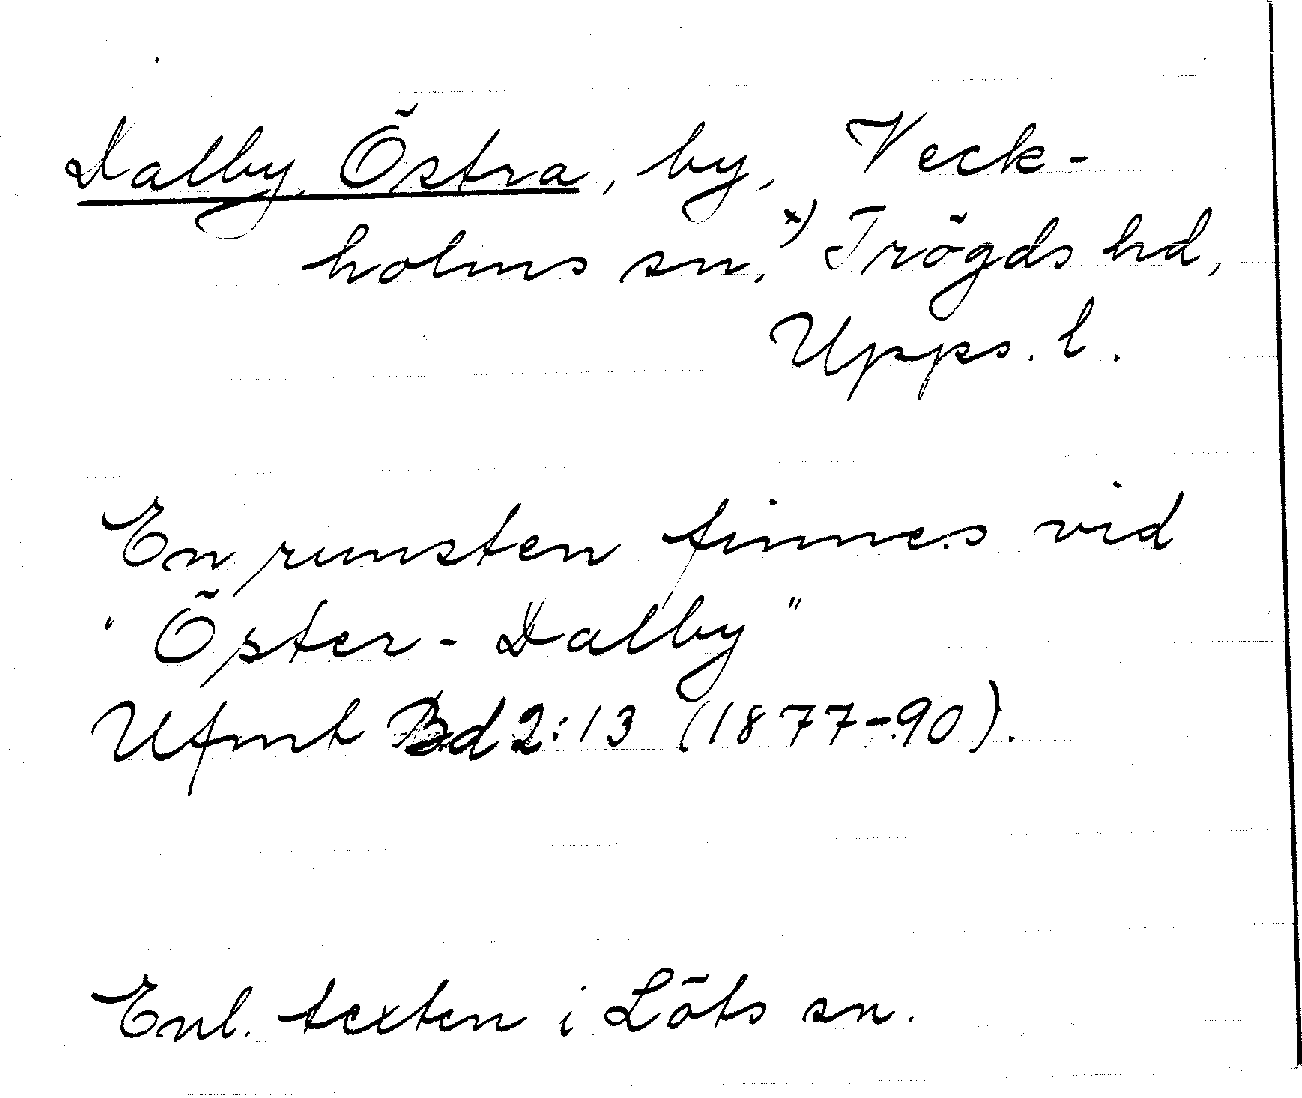 Dalby, Östra, by, Veck-
holms sn,*) Trögds hd,
Upps. l.
En runsten finnes vid
"Öster-Dalby"
Ufmt Bd 2:13 (1877-90).
Enl. texten i Löts sn.